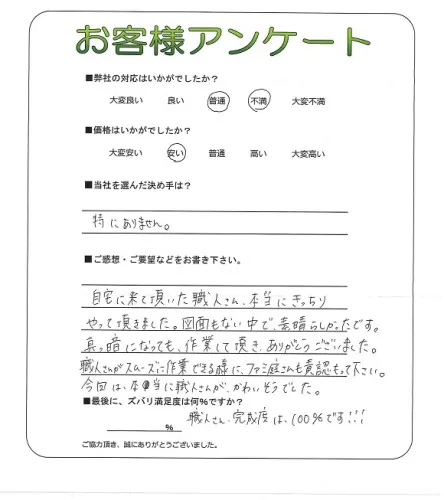 お客様アンケート
■弊社の対応はいかがでしたか？
大変良い 良い 普通 不満 大変不満
■価格はいかがでしたか？
大変安い 安い 普通 高い 大変高い
■当社を選んだ決め手は？
特にありません。
■ご感想・ご要望などをお書き下さい。
自宅に来て頂いた職人さん、本当にきっちり
やって頂きました。図面もない中で、素晴らしかったです。
真っ暗になっても、作業して頂き、ありがとうございました。
職人さんがスムーズに作業できる様に、ファミ庭さんも責認もって下さい。
今回は、本当に職人さんが、かわいそうでした。
■最後に、ズバリ満足度は何％ですか？
％ 職人さん、完成度は、100％です!!!
ご協力頂き、誠にありがとうございました。